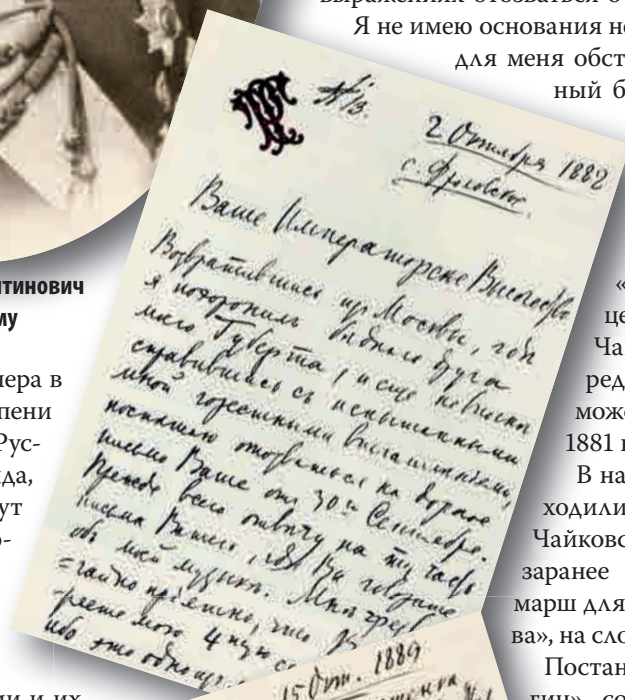 выражениях отозваться о
Я не имею основания не
для меня обст
ный б
2 Октября 188
с. Фроловское.
Ваше Императорское Высочество
Возвратившись из Москвы, где
я похоронил бедного друга
моего Губерта, и еще не вполне
справившись съ испытанными
мной горестными впечатлениями,
поспешаю отозваться на дорогое
письмо Ваше от 30го Сентября.
Прежде всего отвечу на ту часть
письма Вашего, где Вы говорите
об моей музыке. Мне чрез-
=чайно приятно, что В
4ую
ибо это одно из
15 Окт. 1889
тинович
му
нера в
пени
Рус-
да,
ут
о-
ми и их
«
це
Ча
ред
може
1881 г
В на
ходили
Чайковс
заранее
марш для
ва», на сло
Постан
гин» со